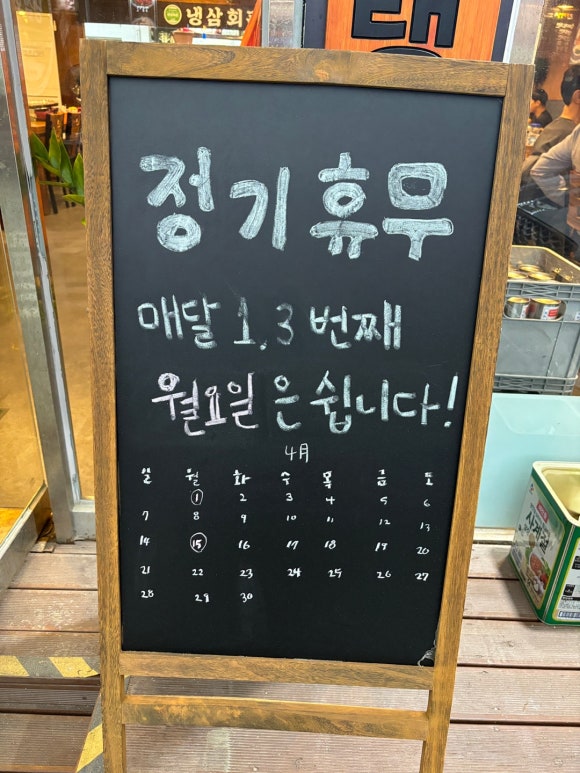 냉삼회
정기휴무
매달 1,3 번째
월요일은 쉽니다!
4月
일 월 화 수 목 금 토
1 2 3 4 5 6
7 8 9 10 11 12 13
14 15 16 17 18 19 20
21 22 23 24 25 26 27
28 29 30